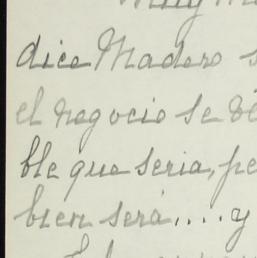 dice Madero s
el negocio se ve
ble que seria, pe
bien será,....y